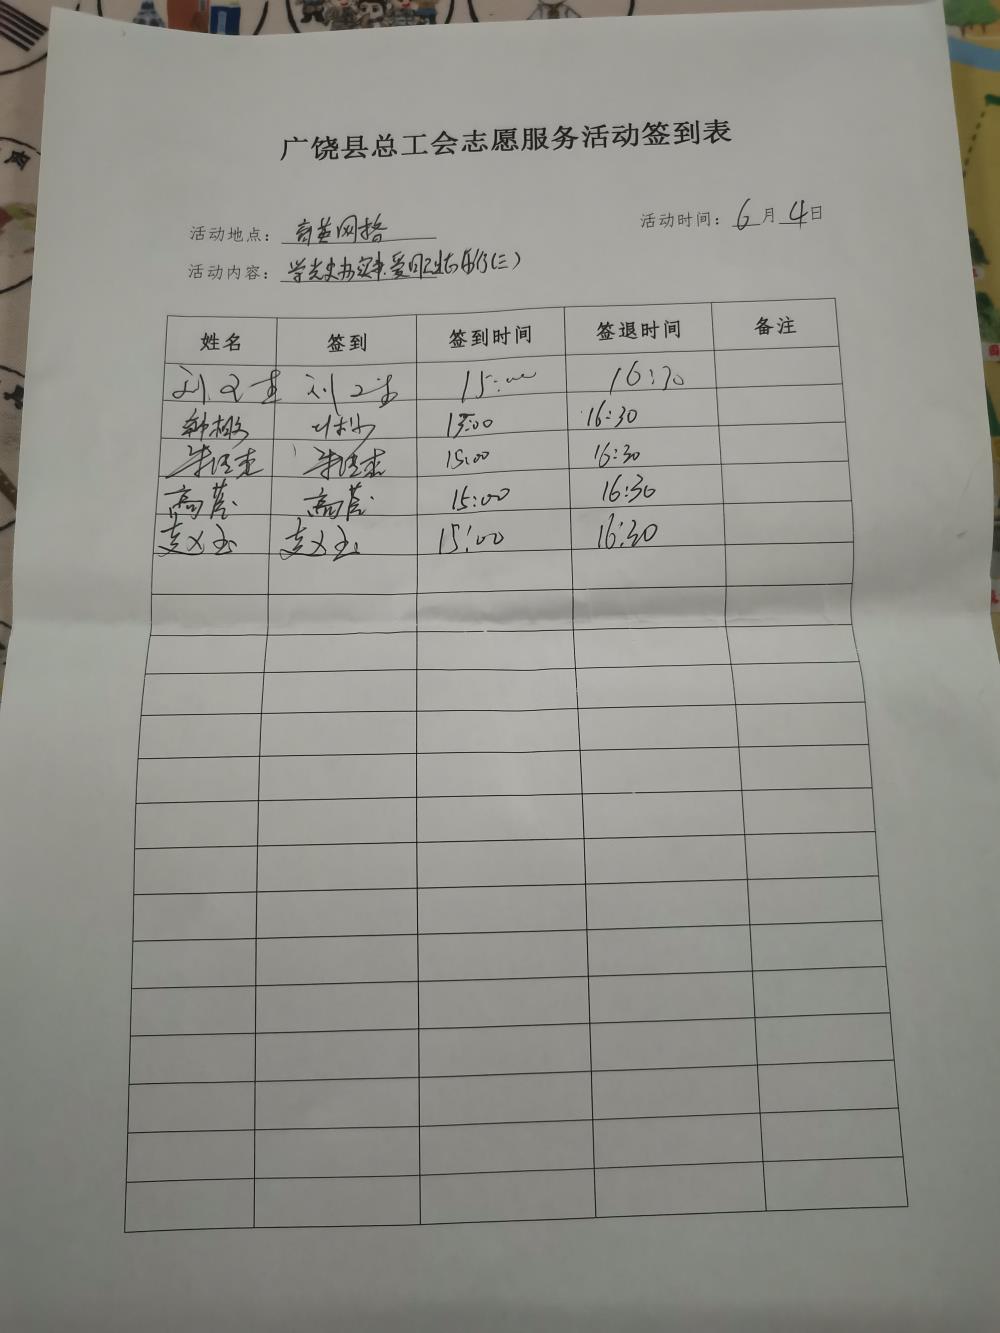 广饶县总工会志愿服务活动签到表
活动地点： 育英网格 活动时间：6月4日
活动内容：学党史办实事.爱卫生志愿行(三)
姓名 签到 签到时间 签退时间 备注
刘 刘 15:00 16:30
韩 15:00 16:30
15:00 16:30
高 高 15:00 16:30
15:00 16:30